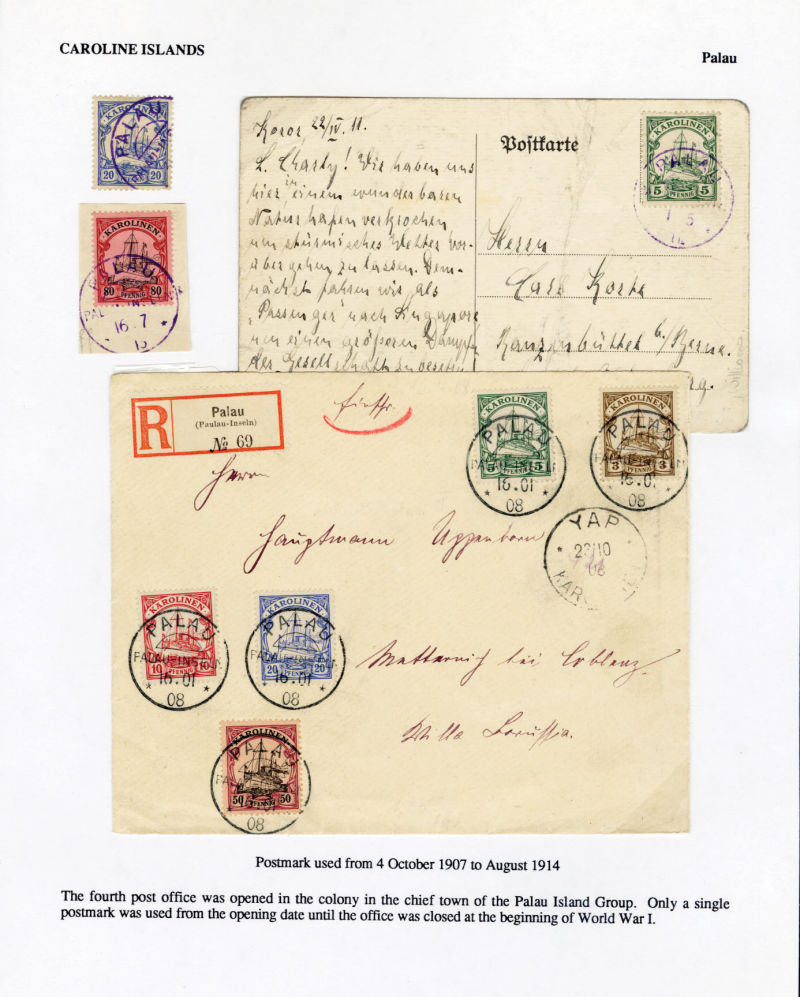 CAROLINE ISLANDS
Palau
KAROLINEN
20 20
PALAU
KAROLINEN
80 PFENNIG 80
PALAU
PALAU-INSELN
16.7
13
Koror 22/IV. 11.
L. Charly! Wir haben uns
hier in einem wunderbaren
Naturhafen verkrochen
um stürmisches Wetter vor-
über gehen zu lassen. Dem-
nächst fahren wir als
„Passenger" nach Singapore
um einen größeren Dampfer
der Gesellschaft zu
Postkarte
KAROLINEN
5 PFENNIG 5
PALAU
1 5
11
Herrn
Carl Korte
Ranzenbüttel b/Berne.
R
Palau
(Paulau-Inseln)
№ 69
Einschr.
KAROLINEN
5 PFENNIG 5
PALAU
PALAU-INSELN
16.01
08
KAROLINEN
3 PFENNIG 3
PALAU
PALAU-INSELN
16.01
08
Herrn
Hauptmann Uppenborn
YAP
23/10
08
KAROLINEN
KAROLINEN
10 PFENNIG 10
PALAU
PALAU-INSELN
16.01
08
KAROLINEN
20 PFENNIG 20
PALAU
PALAU-INSELN
16.01
08
Metternich bei Coblenz.
Villa Borussia.
KAROLINEN
50 PFENNIG 50
PALAU
PALAU-INSELN
16.01
08
Postmark used from 4 October 1907 to August 1914
The fourth post office was opened in the colony in the chief town of the Palau Island Group. Only a single
postmark was used from the opening date until the office was closed at the beginning of World War I.